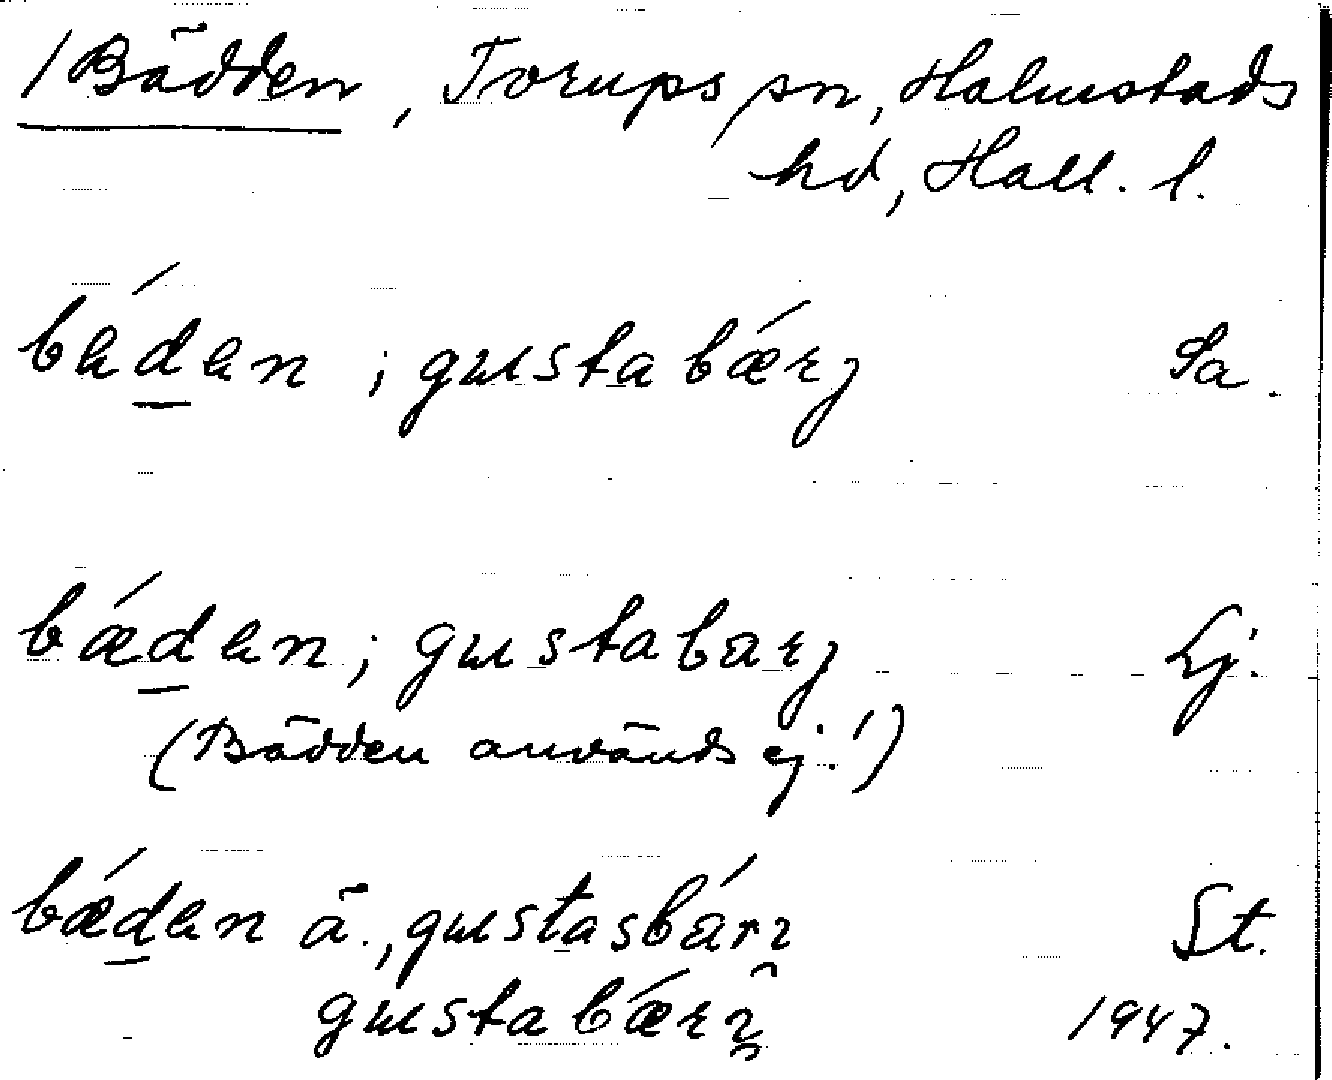 /Bädden, Torups sn, Halmstads
hd, Hall. l.
bádan; gustabǽrj Sa.
bǽdan; gustabarj Lj.
(Bädden används ej!)
bǽdan ä., gustasbárj St.
gustabǽrj 1947.